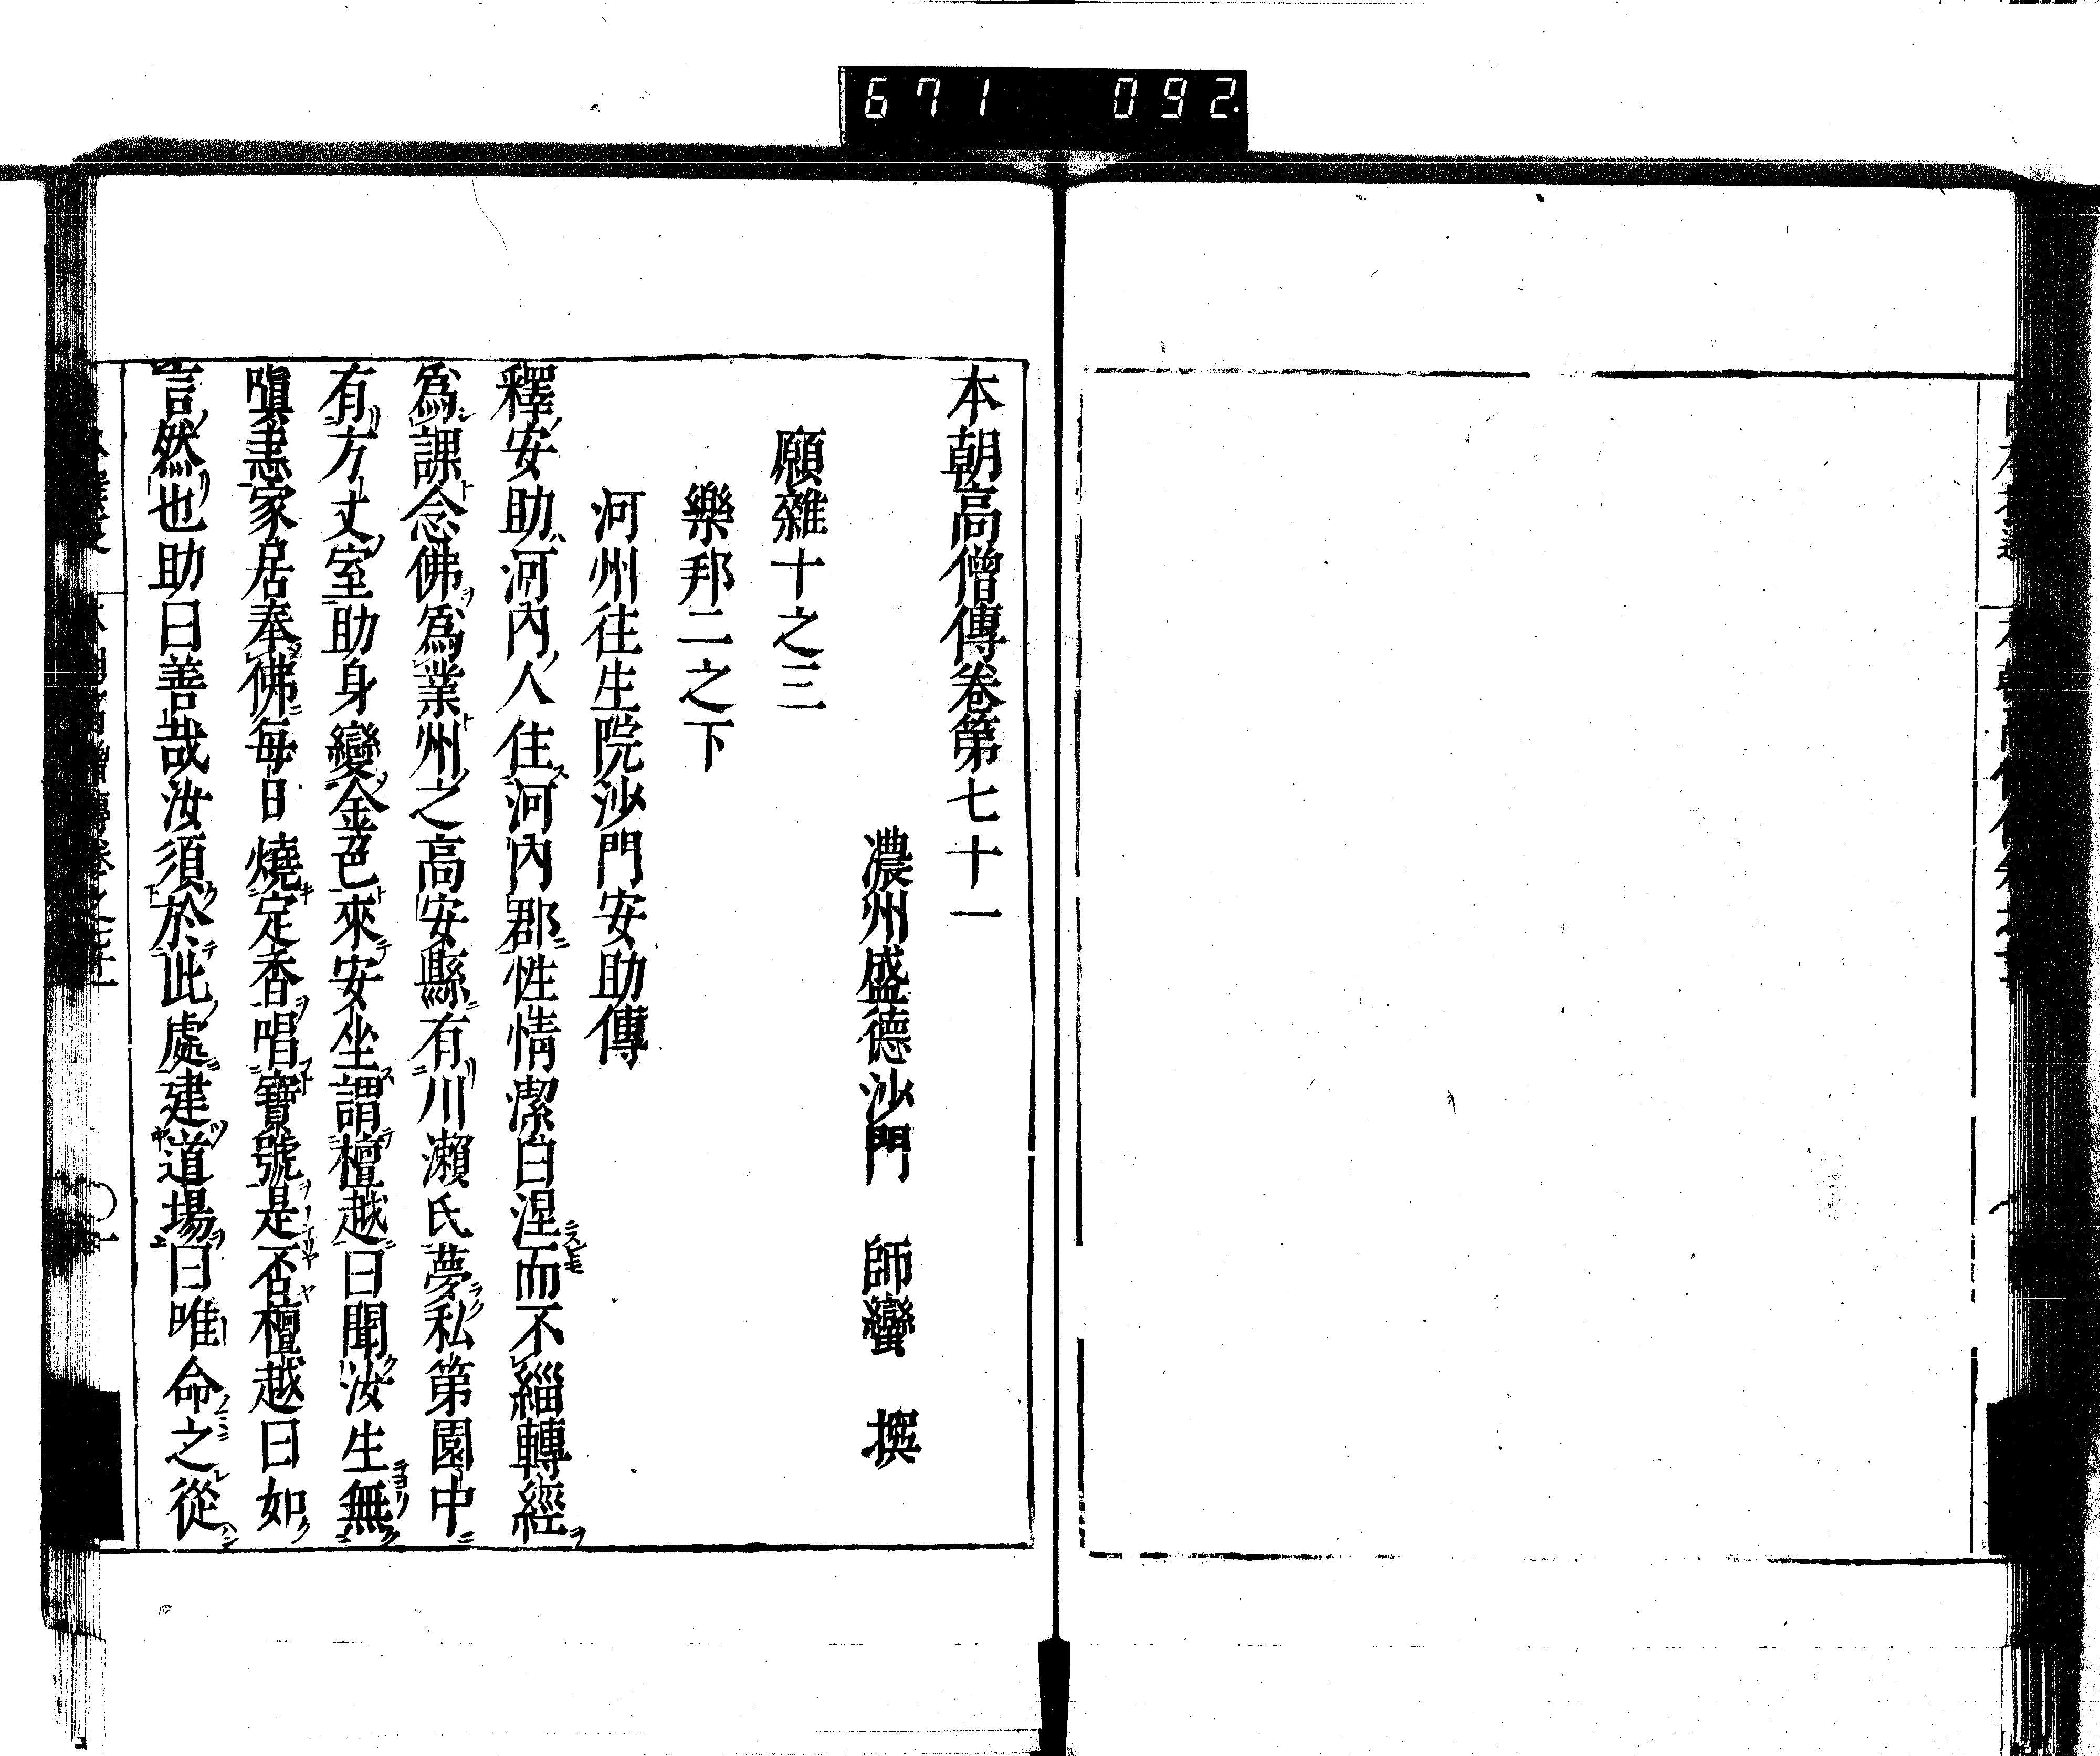 671 092
本朝高僧傳卷第七十一
濃州盛德沙門 師蠻 撰
願雜十之三
樂邦二之下
河州往生院沙門安助傳
釋安助河內人住河內郡性情潔白涅而不緇轉經
爲課念佛爲業州之高安縣有川瀨氏夢私第園中
有方丈室助身變金色來安坐謂檀越曰聞汝生無
嗔恚家居奉佛每日燒定香唱寶號是否檀越曰如
言然也助曰善哉汝須於此處建道場曰唯命之從